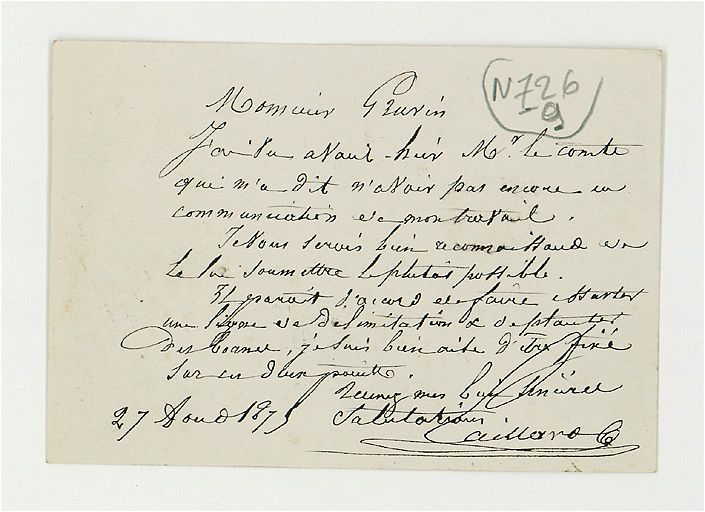 N 726
9
Monsieur
J'ai vu avant-hier Mr. le comte
qui m'a dit n'avoir pas encore eu
communication de mon travail.
Je vous serais bien reconnaissant de
le lui soumettre le plutôt possible.
Il parait d'accord de faire
une ligne de délimitation & de planter
des bornes, je suis bien aise d'être fixé
sur ces deux points.
Recevez mes bien sincères
Salutations
27 Aout 1875